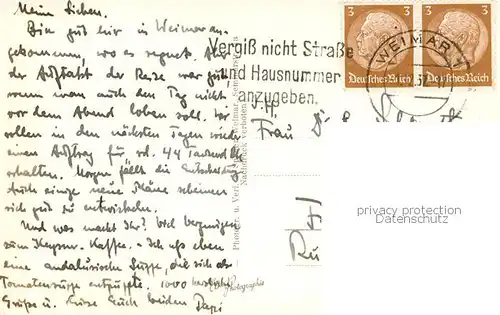 Meine Lieben.
Bin gut hier in Weimar an-
gekommen, wo es regnet. Aber
der Auftakt der Reise war gut
wenn man auch den Tag nicht
vor dem Abend loben soll. Wir
sollen in den nächsten Tagen wieder
einen Auftrag für rd. 44 Tausend
erhalten. Morgen fällt die Entscheidung
Auch einige neue Pläne scheinen
sich gut zu entwickeln.
Und was macht Ihr? Viel Vergnügen
zum Kaffee. - Ich aß eben
eine andalusische Suppe, die sich als
Tomatensuppe entpuppte. 1000 herzliche
Grüße u. Küsse Euch beiden Papi
Vergiß nicht Straße
und Hausnummer
anzugeben.
WEIMAR 1
3 3
Deutsches Reich Deutsches Reich
Frau
Photogr. u. Verl. Weimar,
Nachdruck verboten
Echte Photographie
privacy protection
Datenschutz